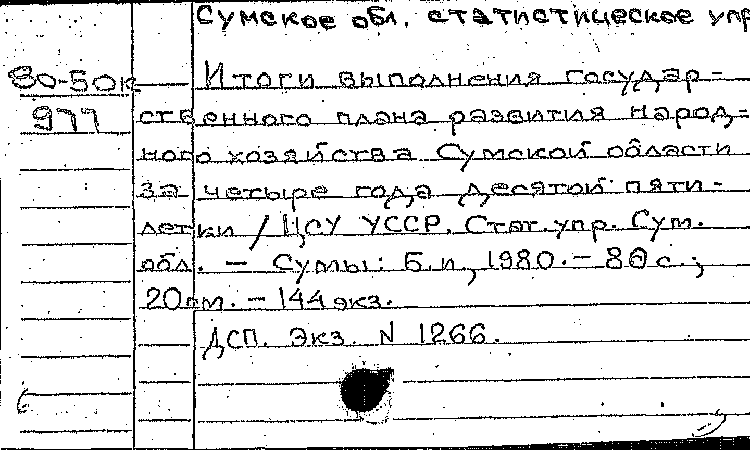 Сумское обл. статистическое упр
80-50к Итоги выполнения государ-
977 ственного плана развития народ-
ного хозяйства Сумской области
за четыре года десятой пяти-
летки / ЦСУ УССР. Стат. упр. Сум.
обл. – Сумы: Б.и, 1980. – 80с.;
20см. – 144 экз.
ДСП. Экз. N 1266.